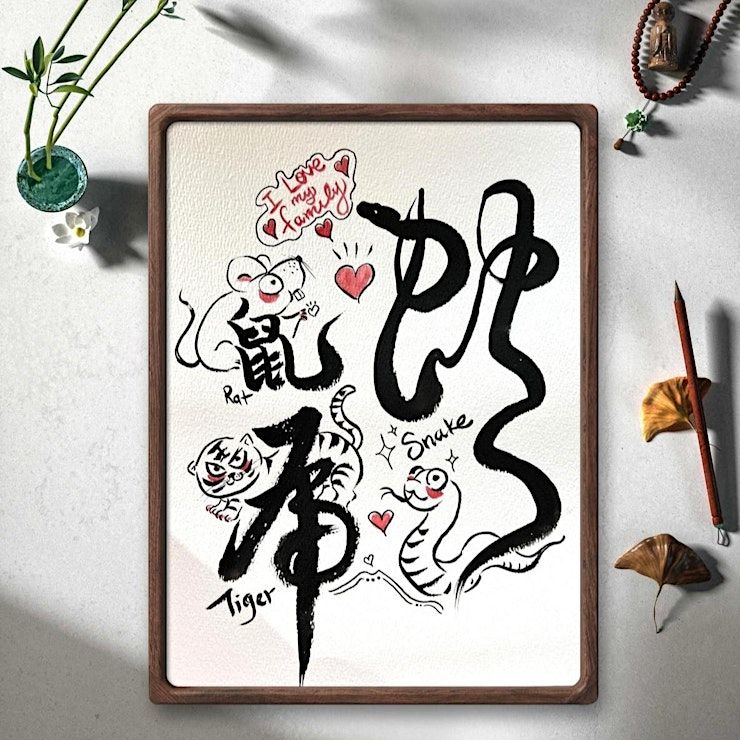 I Love
my
family
鼠
Rat
虎
Tiger
蛇
Snake